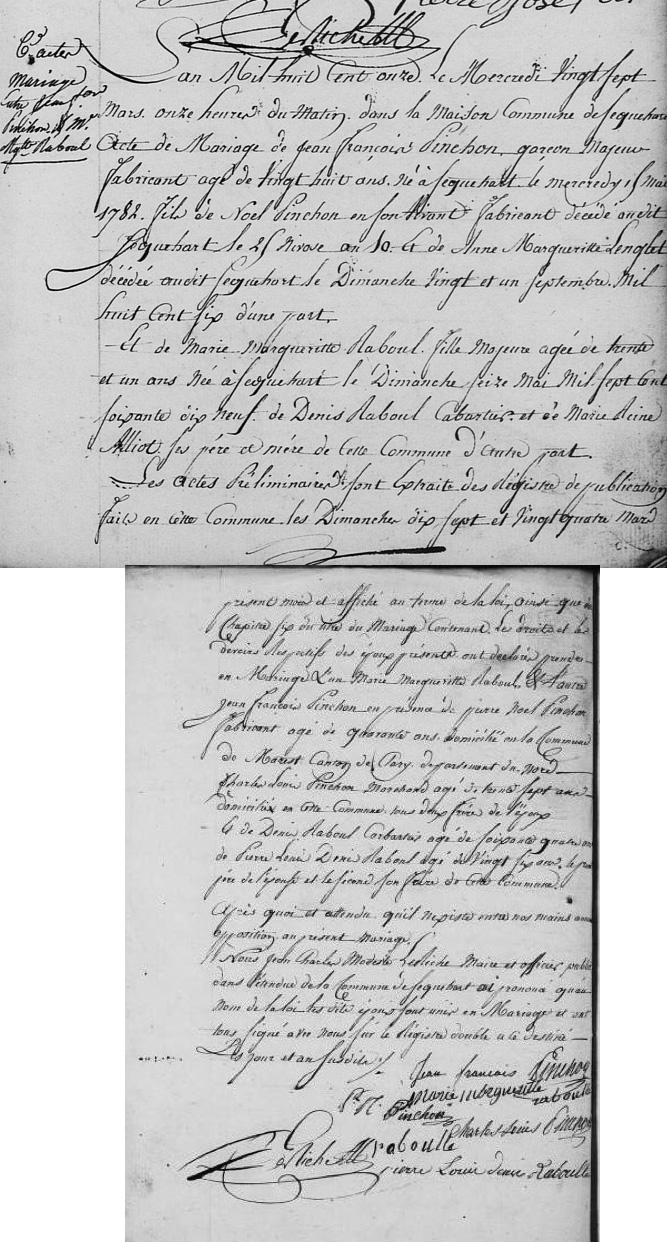 Pierre Josep
Lesliche
Acte
mariage
entre jean fon
Pinchon & Mie
Mgtte Raboul
L'an Mil huit Cent onze Le Mercredi Vingt sept
Mars. onze heures du Matin. dans la Maison Commune de Sequehart
Acte de Mariage de jean françois Pinchon, garcon Majeur
fabricant agé de Vingt huit ans. Né à Sequehart le mercredy 15 Mai
1782. fils de Noel Pinchon en son Vivant fabricant décédé audit
Sequehart le 25 Nivose an 10. Et de Anne Margueritte Lenglet
décédée audit Sequehart le Dimanche Vingt et un septembre. Mil
huit Cent six d'une part.
- Et de Marie Margueritte Raboul. fille Majeure agée de trente
et un ans Née à Sequehart le Dimanche seize Mai Mil. sept Cent
soixante dix neuf. de Denis Raboul Cabartier. et de Marie Reine
Alliot. ses pére et mére de Cette Commune d'autre part.
Les actes Préliminaires sont Extraits des Régistre de publication
faits en cette Commune les Dimanches dix sept et Vingt quatre Mars
présent mois et affiché au terme de la loi, ainsi que du
Chapitre six du titre du Mariage Contenant Les droits et les
devoirs Respectifs des époux présents ont déclarés prendre
en Mariage L'un Marie Margueritte Raboul. & L'autre
jean françois Pinchon en présence de pierre Noel Pinchon
fabricant agé de quarante ans. domicilié en la Commune
de Marest Canton de Clary. departement du Nord
Charles Louis Pinchon Marchand agé de trente sept ans
domicilié en cette Commune tous deux frére de l'époux
& de Denis Raboul Cabartier agé de soixante quatre ans
de Pierre Louis Denis Raboul agé de Vingt six ans. le premier
pére de l'épouse et le second son frére de cette Commune.
Après quoi et attendu qu'il n'existe entre nos mains aucune
opposition au présent Mariage,
Nous Jean Charles Modeste Lesliche Maire et officier public
dans l'étendue de la Commune de Sequehart ai prononcé qu'au
Nom de la loi les dits époux sont unis en Mariage et ont
tous signé avec Nous sur le Régistre double a ce destiné
Les jour et an susdits
Jean francois Pinchon
Marie margueritte raboulle
Pre N. Pinchon
Charles Louis Pinchon
Lesliche raboulle
pierre Louis denis Raboulle